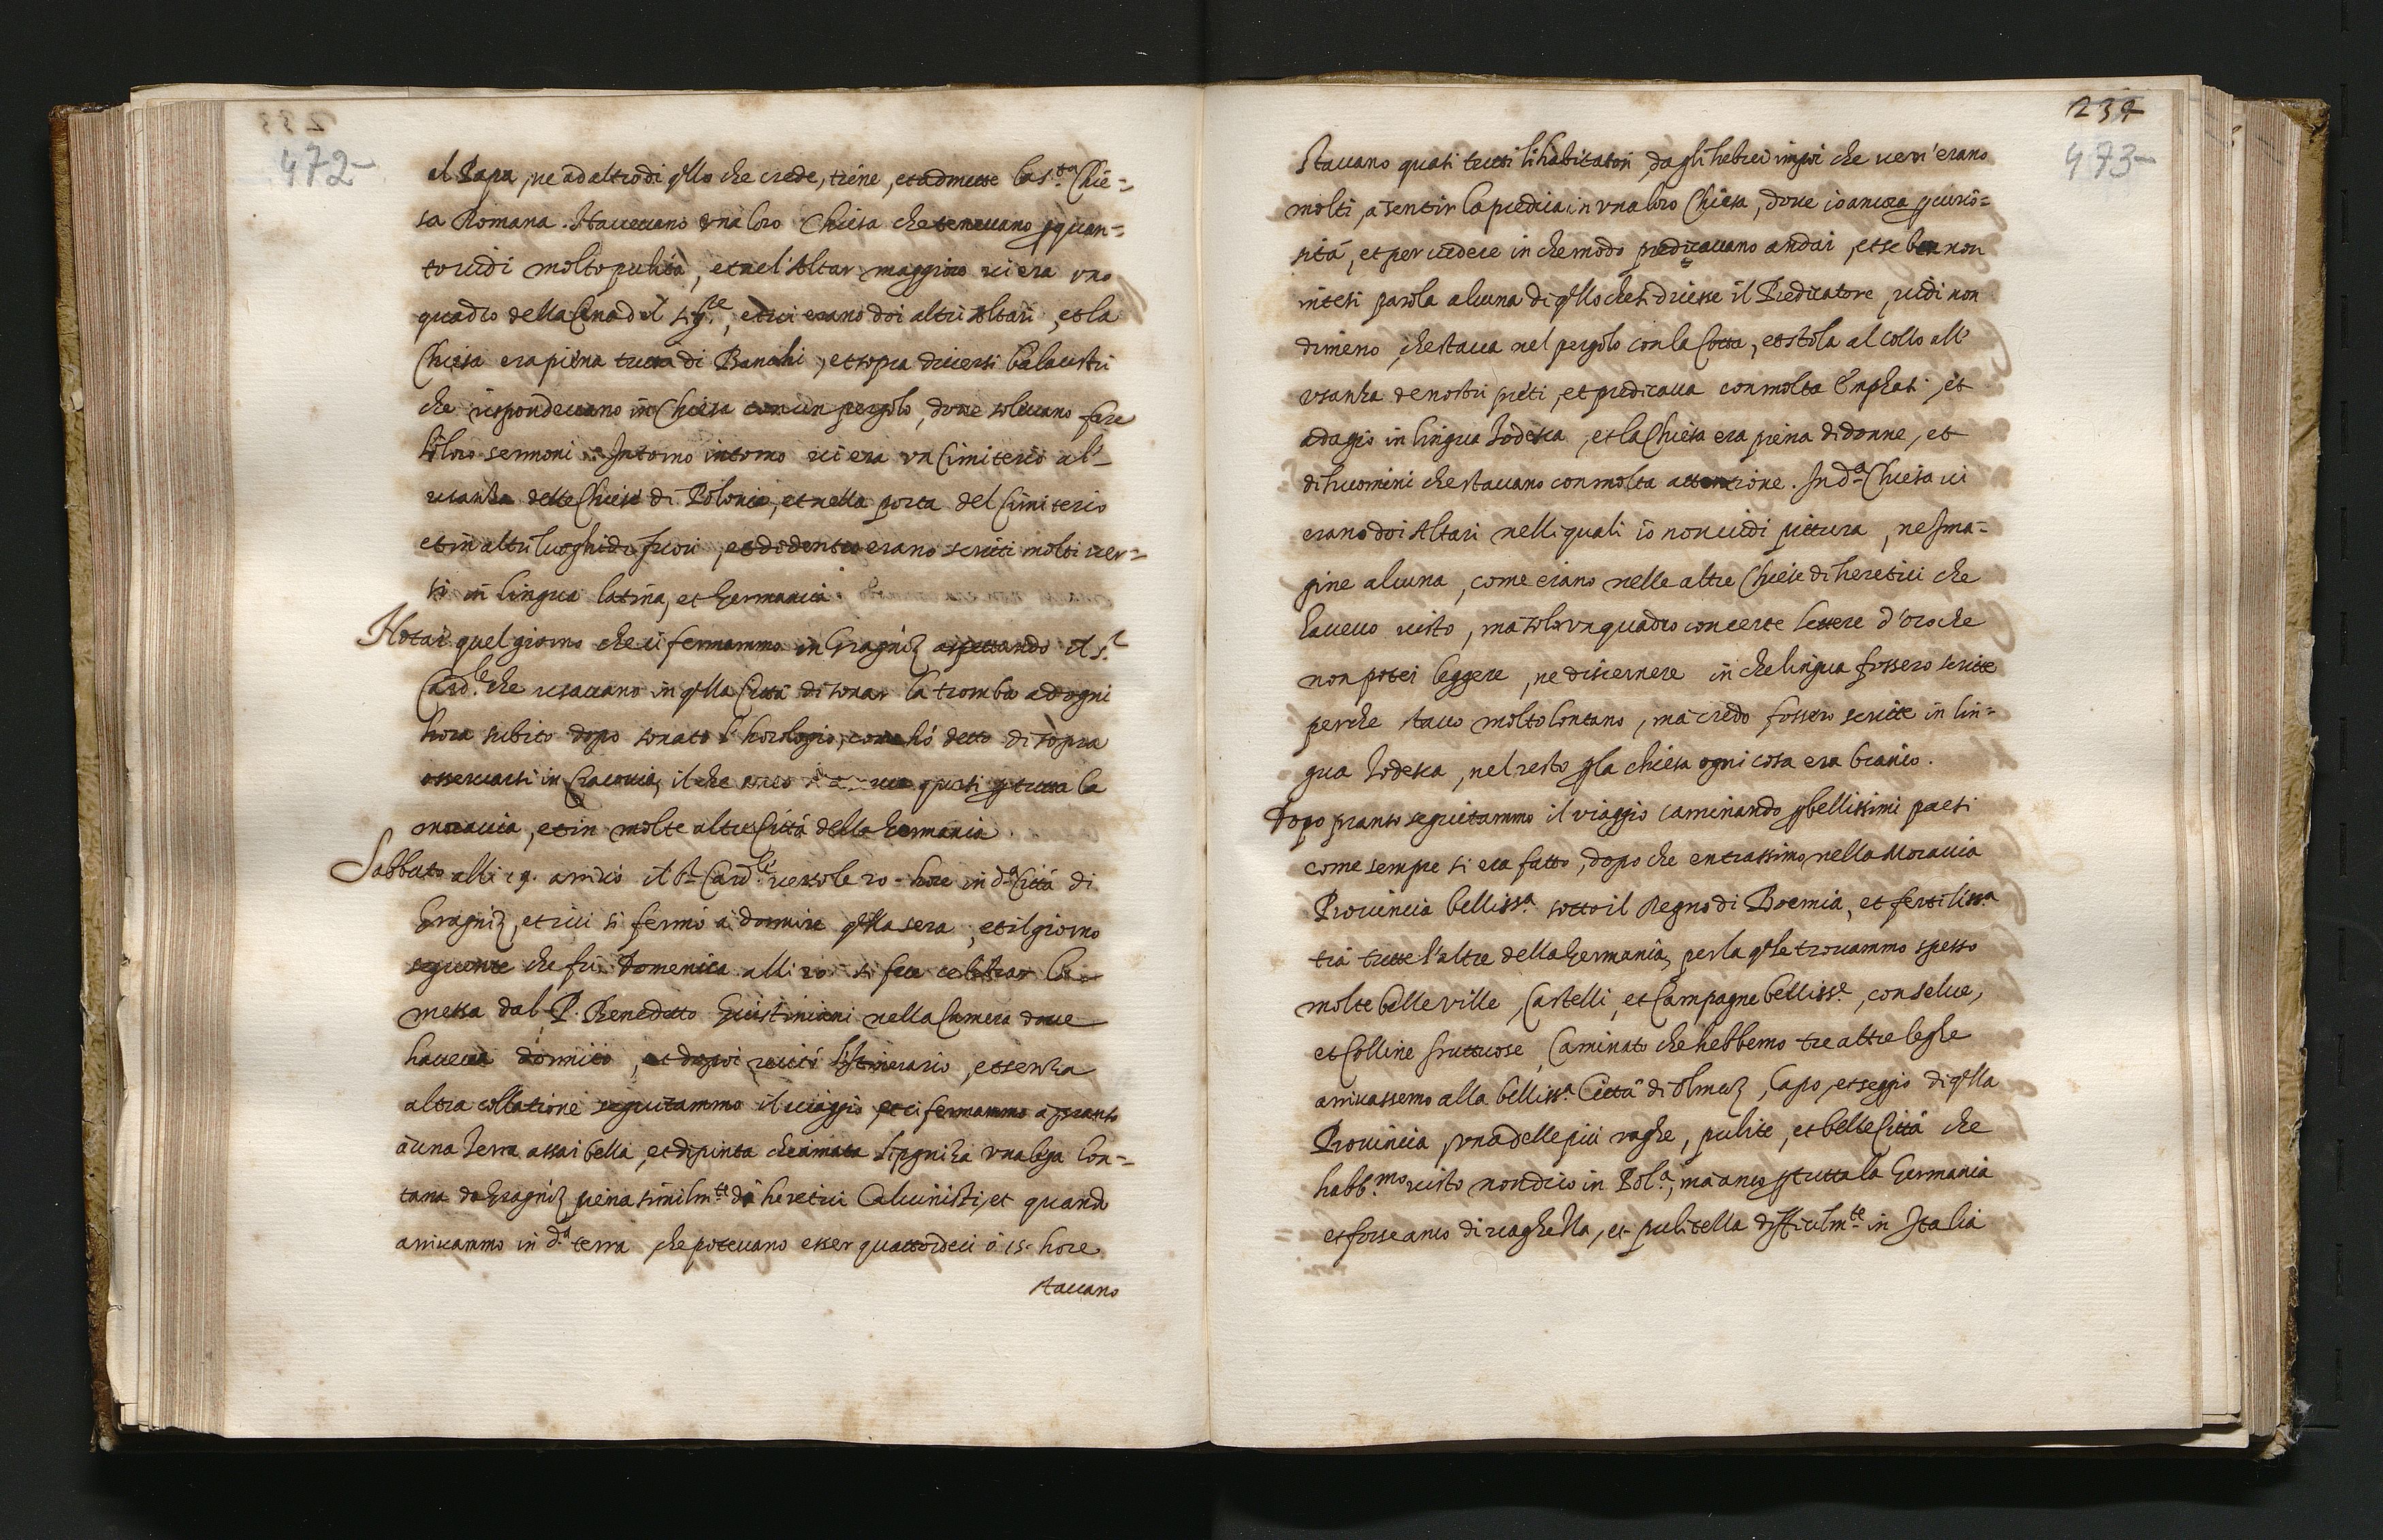 472
al Papa, ne ad altro di qllo che crede, tiene, et admette la S.ta Chie=
sa Romana. Haueuano una loro Chiesa che teneuano p quan=
to uidi molto pulita, et nel'Altar maggiore ui era uno
quadro della Cena del Sig.re, et ui erano doi altri Altari, et la
Chiesa era piena tutta di Banchi, et sopra diuersi balaustri
che rispondeuano in Chiesa con un pergolo, doue soleuano fare
li loro sermoni. Intorno intorno ui era un Cimiterio al'
usanza delle Chiese di Polonia, et nella porta del Cimiterio
et in altri luoghi di fuori, et di dentro erano scritti molti uer=
si in lingua latina, et Germanica
Notai quel giorno che ci fermammo in Gragniz aspettando il s.r
Card.le che usauano in qlla Città di sonar la tromba ad ogni
hora subito dopo sonato l'horologio, come hò detto di sopra
osseruarsi in Cracouia, il che quasi p tutta la
morauia, et in molte altre Città della Germania
Sabbato alli 19. arriuò il s.r Card.le uerso le 20- hore in d.a Città di
Gragniz, et iui si fermò à dormire qlla sera, et il giorno
seguente che fù Domenica alli 20 si fece celebrar la
messa dal P. Benedetto Giustiniani nella Camera doue
haueua dormito, et dopoi recitò l'Itinerario, et senza
altra collatione seguitammo il uiaggio, et ci fermammo à pranso
à una Terra assai bella, et dipinta chiamata Lipgniza una lega lon=
tana da Gragniz piena similm.te di heretici Caluinisti, et quando
arriuammo in d.a terra, che poteuano esser quattordeci ò 15- hore
stauano
234
473
Stauano quasi tutti li habitatori, da gli hebrei impoi che uen'erano
molti, a sentir la predica in una loro Chiesa, doue io ancora p curio=
sità, et per uedere in che modo predicauano andai, et se ben non
intesi parola alcuna di qllo che si dicesse il Predicatore, uidi non
dimeno, che staua nel pergolo con la Cotta, et stola al collo all'
usanza de nostri preti, et predicaua con molta Emphasi, et
adagio in lingua Todesca, et la Chiesa era piena di donne, et
di huomini che stauano con molta attentione. In d.a Chiesa ui
erano doi Altari nelli quali io non uidi pittura, ne Ima=
gine alcuna, come erano nelle altre Chiese di heretici che
haueuo uisto, mà solo un quadro con certe lettere d'oro che
non potei leggere, ne discernere in che lingua fossero scritte
perche stauo molto lontano, mà credo fossero scritte in lin=
gua Todesca, nel resto p la chiesa ogni cosa era bianco.
Dopo pranso seguitammo il uiaggio caminando p bellissimi paesi
come sempre si era fatto, dopo che entrassimo nella Morauia
Prouincia belliss.a sotto il Regno di Boemia, et fertiliss.a
trà tutte l'altre della Germania, per la qle trouammo spesso
molte belle ville, Castelli, et Campagne belliss.e, con selue,
et Colline fruttuose, Caminato che hebbemo tre altre leghe
arriuassemo alla belliss.a Città di Olmuz, Capo, et seggio di qlla
Prouincia, una delle più uaghe, pulite, et belle Città che
habb.mo uisto non dico in Pol.a, mà anco p tutta la Germania
et forse anco di uaghezza, et pulitezza difficilm.te in Italia